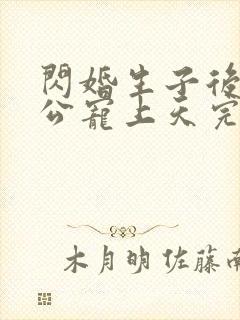 閃婚生子後
公寵上天完
木月明佐藤南